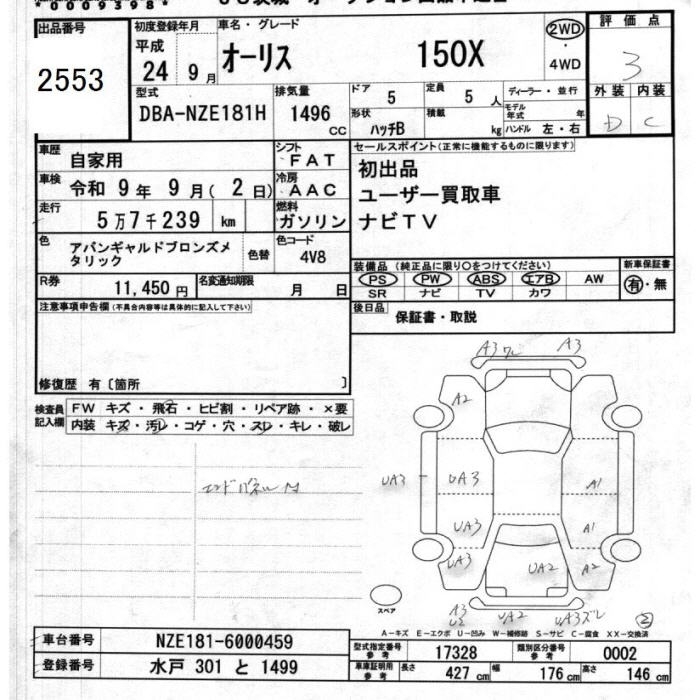 *0009398*
出品番号
2553
初度登録年月
平成
24 9月
車名・グレード
オーリス 150X
2WD
・
4WD
評価点
3
型式
DBA-NZE181H
排気量
1496
cc
ドア
5
定員
5 人
ディーラー・並行
モデル年式 年
外装 内装
D C
形状
ハッチB
積載
kg
ハンドル 左・右
車歴
自家用
シフト
FAT
セールスポイント(正常に機能するものに限ります)
初出品
ユーザー買取車
ナビTV
車検
令和 9年 9月( 2日)
冷房
AAC
走行
5万7千239 km
燃料
ガソリン
色
アバンギャルドブロンズメタリック
色替
色コード
4V8
装備品(純正品に限り○をつけてください)
PS PW ABS エアB AW
SR ナビ TV カワ
新車保証書
有・無
R券
11,450円
名変通知期限
月 日
後日品
保証書・取説
注意事項申告欄(不具合内容等は具体的に記入して下さい)
修復歴 有〔箇所 〕
検査員記入欄
FW キズ・飛石・ヒビ割・リペア跡・×要
内装 キズ・汚レ・コゲ・穴・スレ・キレ・破レ
エンドパネル
A3 A3
A2
UA3 UA3 A1
UA3 A1
UA2 A2
A3 UA2 UA3ズレ
U2
スペア
2
A-キズ E-エクボ U-凹み W-補修跡 S-サビ C-腐食 XX-交換済
車台番号 NZE181-6000459
登録番号 水戸 301 と 1499
型式指定番号 参考 17328
類別区分番号 参考 0002
車庫証明用 参考 長さ 427 cm 幅 176 cm 高さ 146 cm